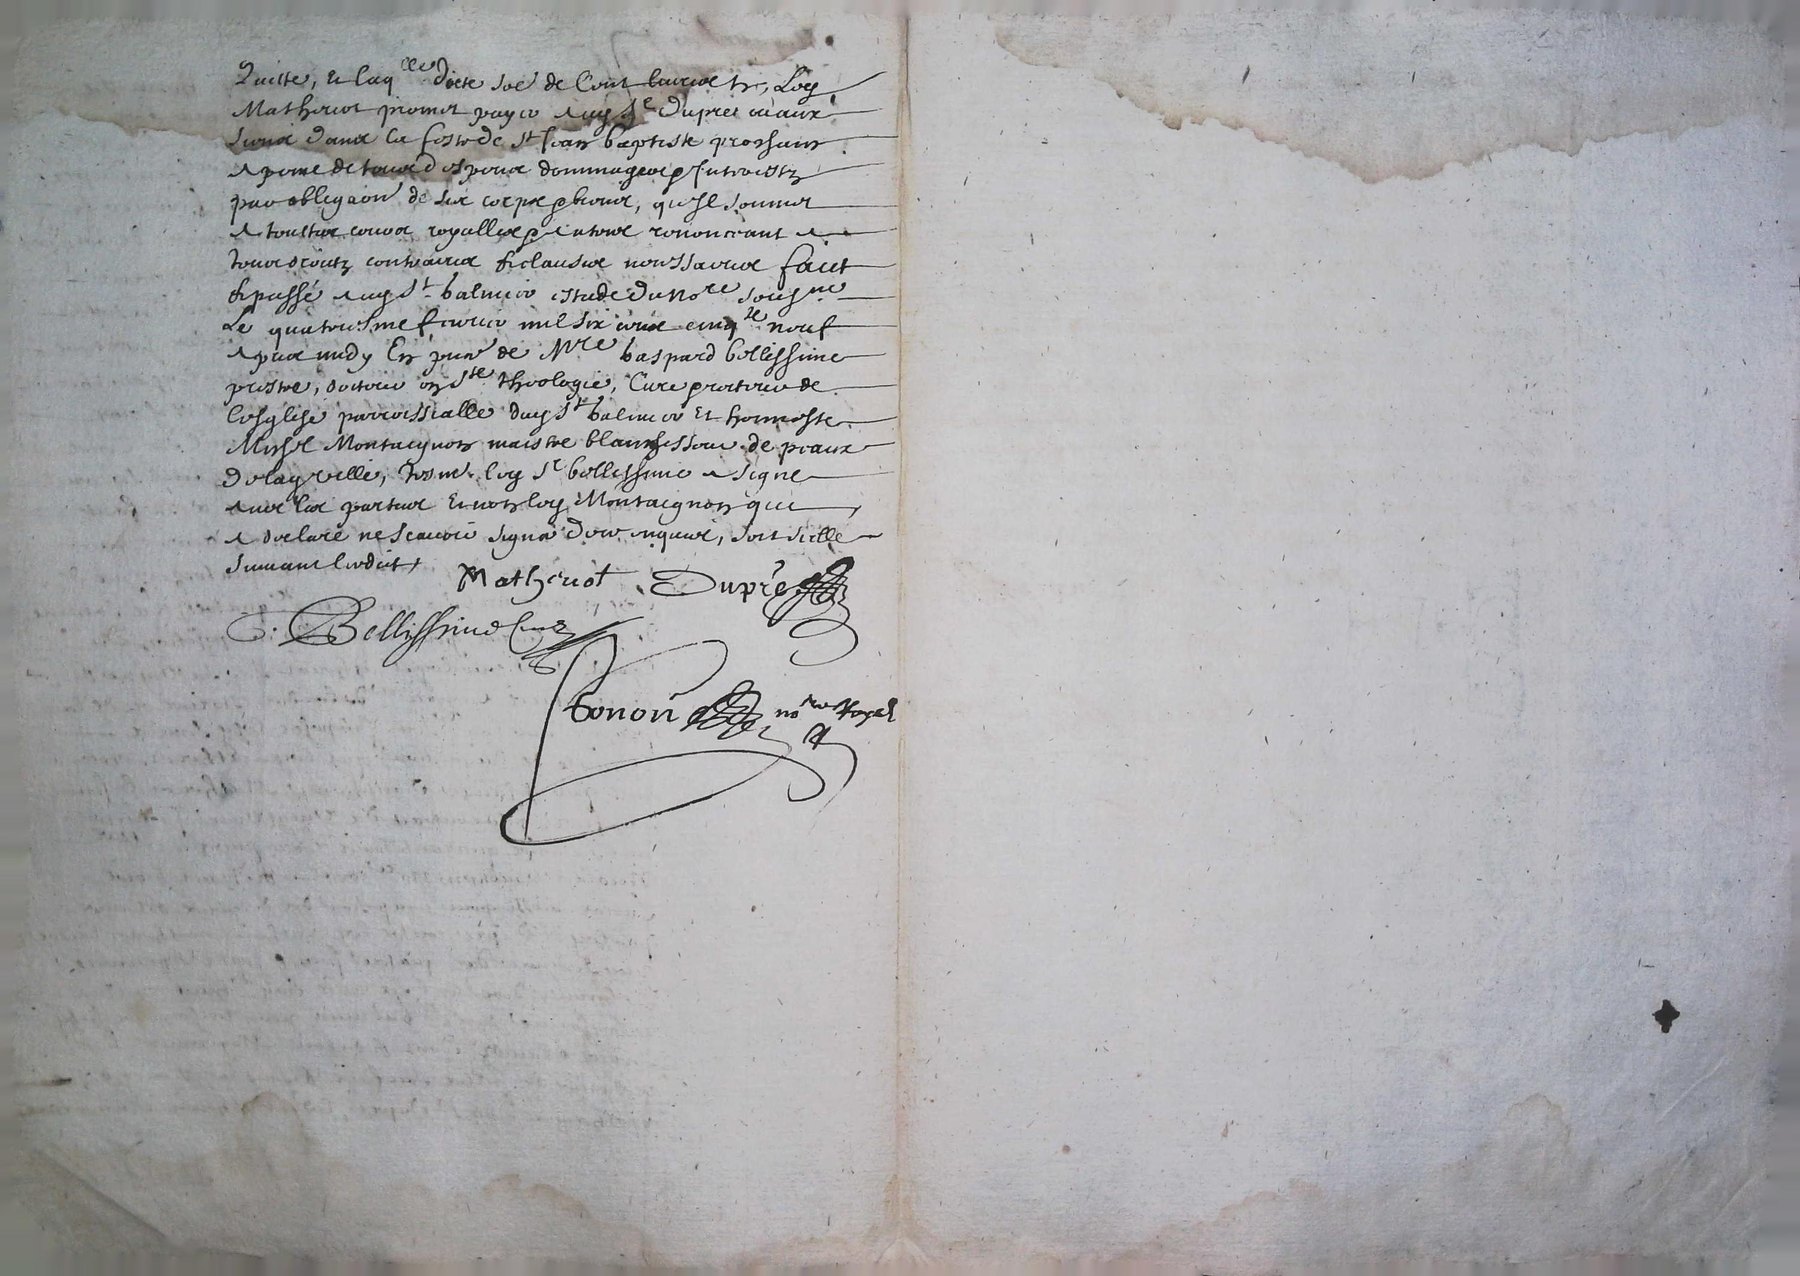 Quitte, Et laqlle dicte soe de Cent livres tz, Ledt
Matheriot promet payer aud Sr Dupré ou aux
siens dans la feste de St Jean baptiste prochain
a peine de tous despens dommages & Interestz
par obligaon de ses corps & biens, quil soumet
a touttes cours royalles & autres renonceant a
tous droictz contraires & clauses necessaires faict
& passé aud St balmier estude du Nore soussné
Le quatorsme febvrier mil six cens cinqte neuf
apres midy En pnce de Mre Gaspard bellissime
prestre, docteur en Ste theologie, Curé & recteur de
lesglise parroissialle dud St balmier Et honneste
Michel Montaignon maistre blanchisseur de peaux
de lad ville, tesms. led Sr bellissime a signé
avec les parties Et non led Montaignon qui
a declaré ne scavoir signer de ce enquis, soit scellé
suivant l'edict
Matheriot Dupré
G. Bellissime Curé
Bonon nore Royal